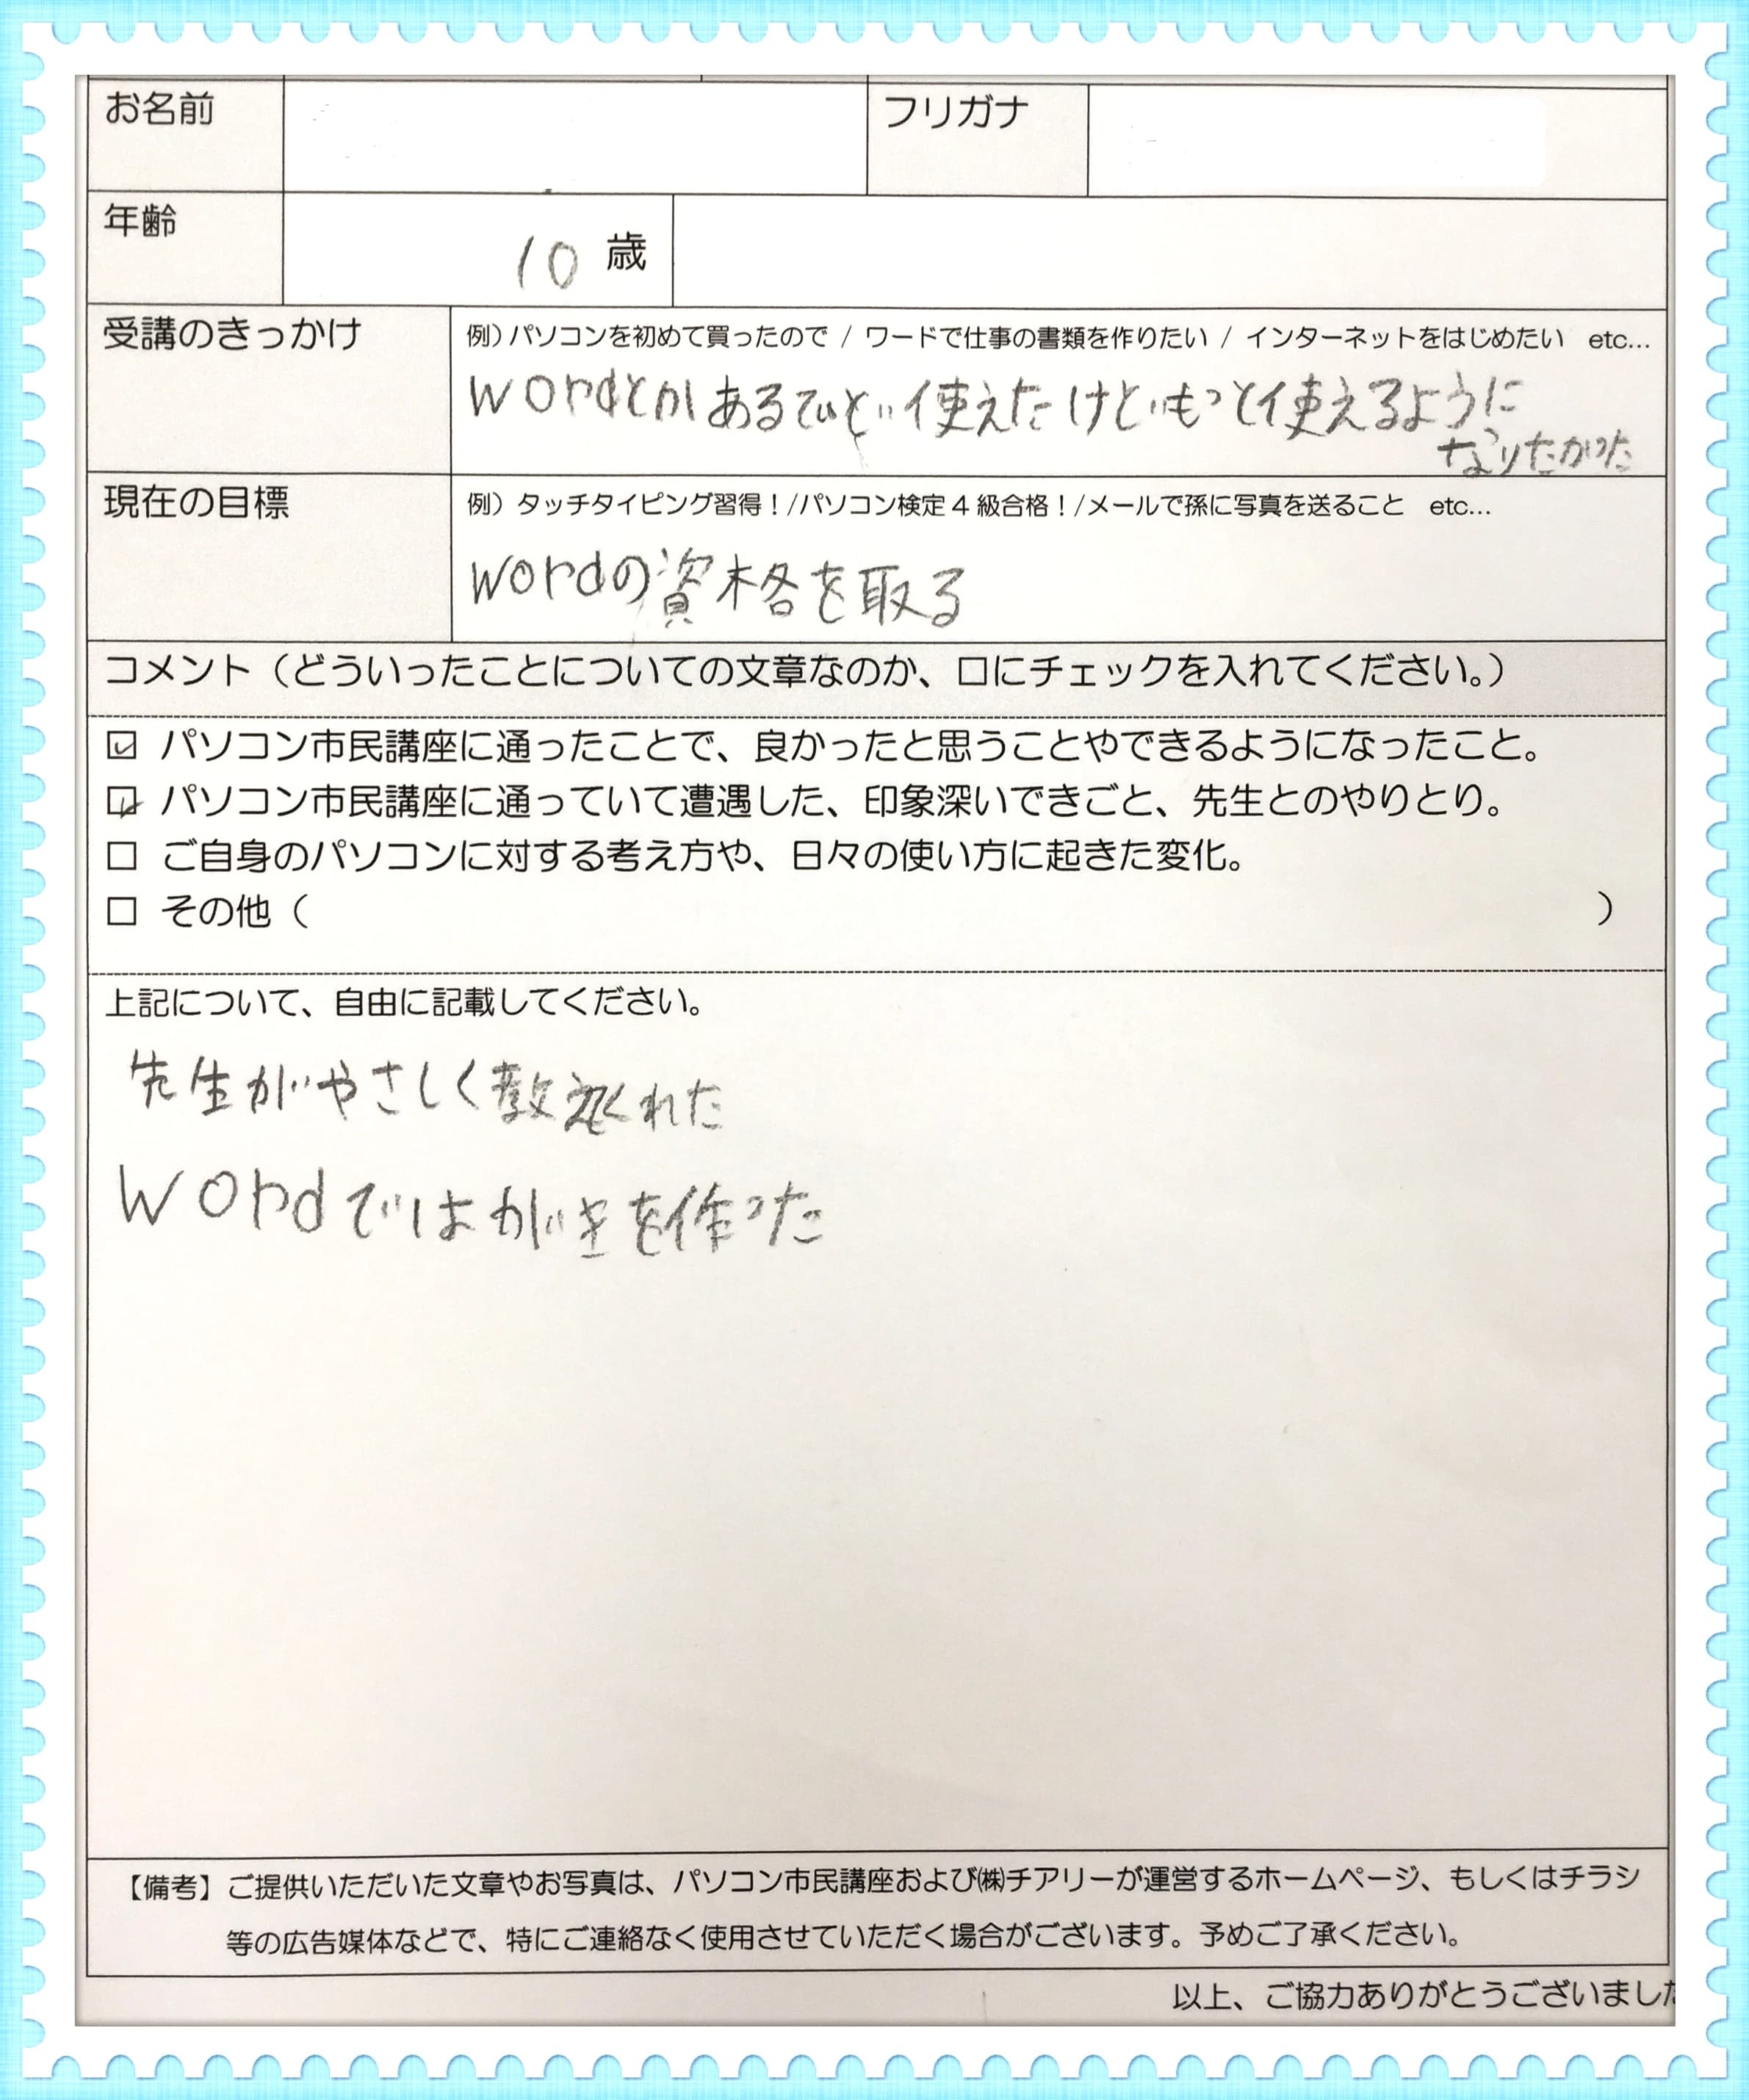 お名前 フリガナ
年齢 10 歳
受講のきっかけ 例）パソコンを初めて買ったので / ワードで仕事の書類を作りたい / インターネットをはじめたい etc...
wordとかあるていど使えたけどもっと使えるように
なりたかった
現在の目標 例）タッチタイピング習得！/パソコン検定４級合格！/メールで孫に写真を送ること etc...
wordの資格を取る
コメント（どういったことについての文章なのか、口にチェックを入れてください。）
☑ パソコン市民講座に通ったことで、良かったと思うことやできるようになったこと。
☑ パソコン市民講座に通っていて遭遇した、印象深いできごと、先生とのやりとり。
□ ご自身のパソコンに対する考え方や、日々の使い方に起きた変化。
□ その他（ ）
上記について、自由に記載してください。
先生がやさしく教えてくれた
wordではがきを作った
【備考】ご提供いただいた文章やお写真は、パソコン市民講座および㈱チアリーが運営するホームページ、もしくはチラシ
等の広告媒体などで、特にご連絡なく使用させていただく場合がございます。予めご了承ください。
以上、ご協力ありがとうございました